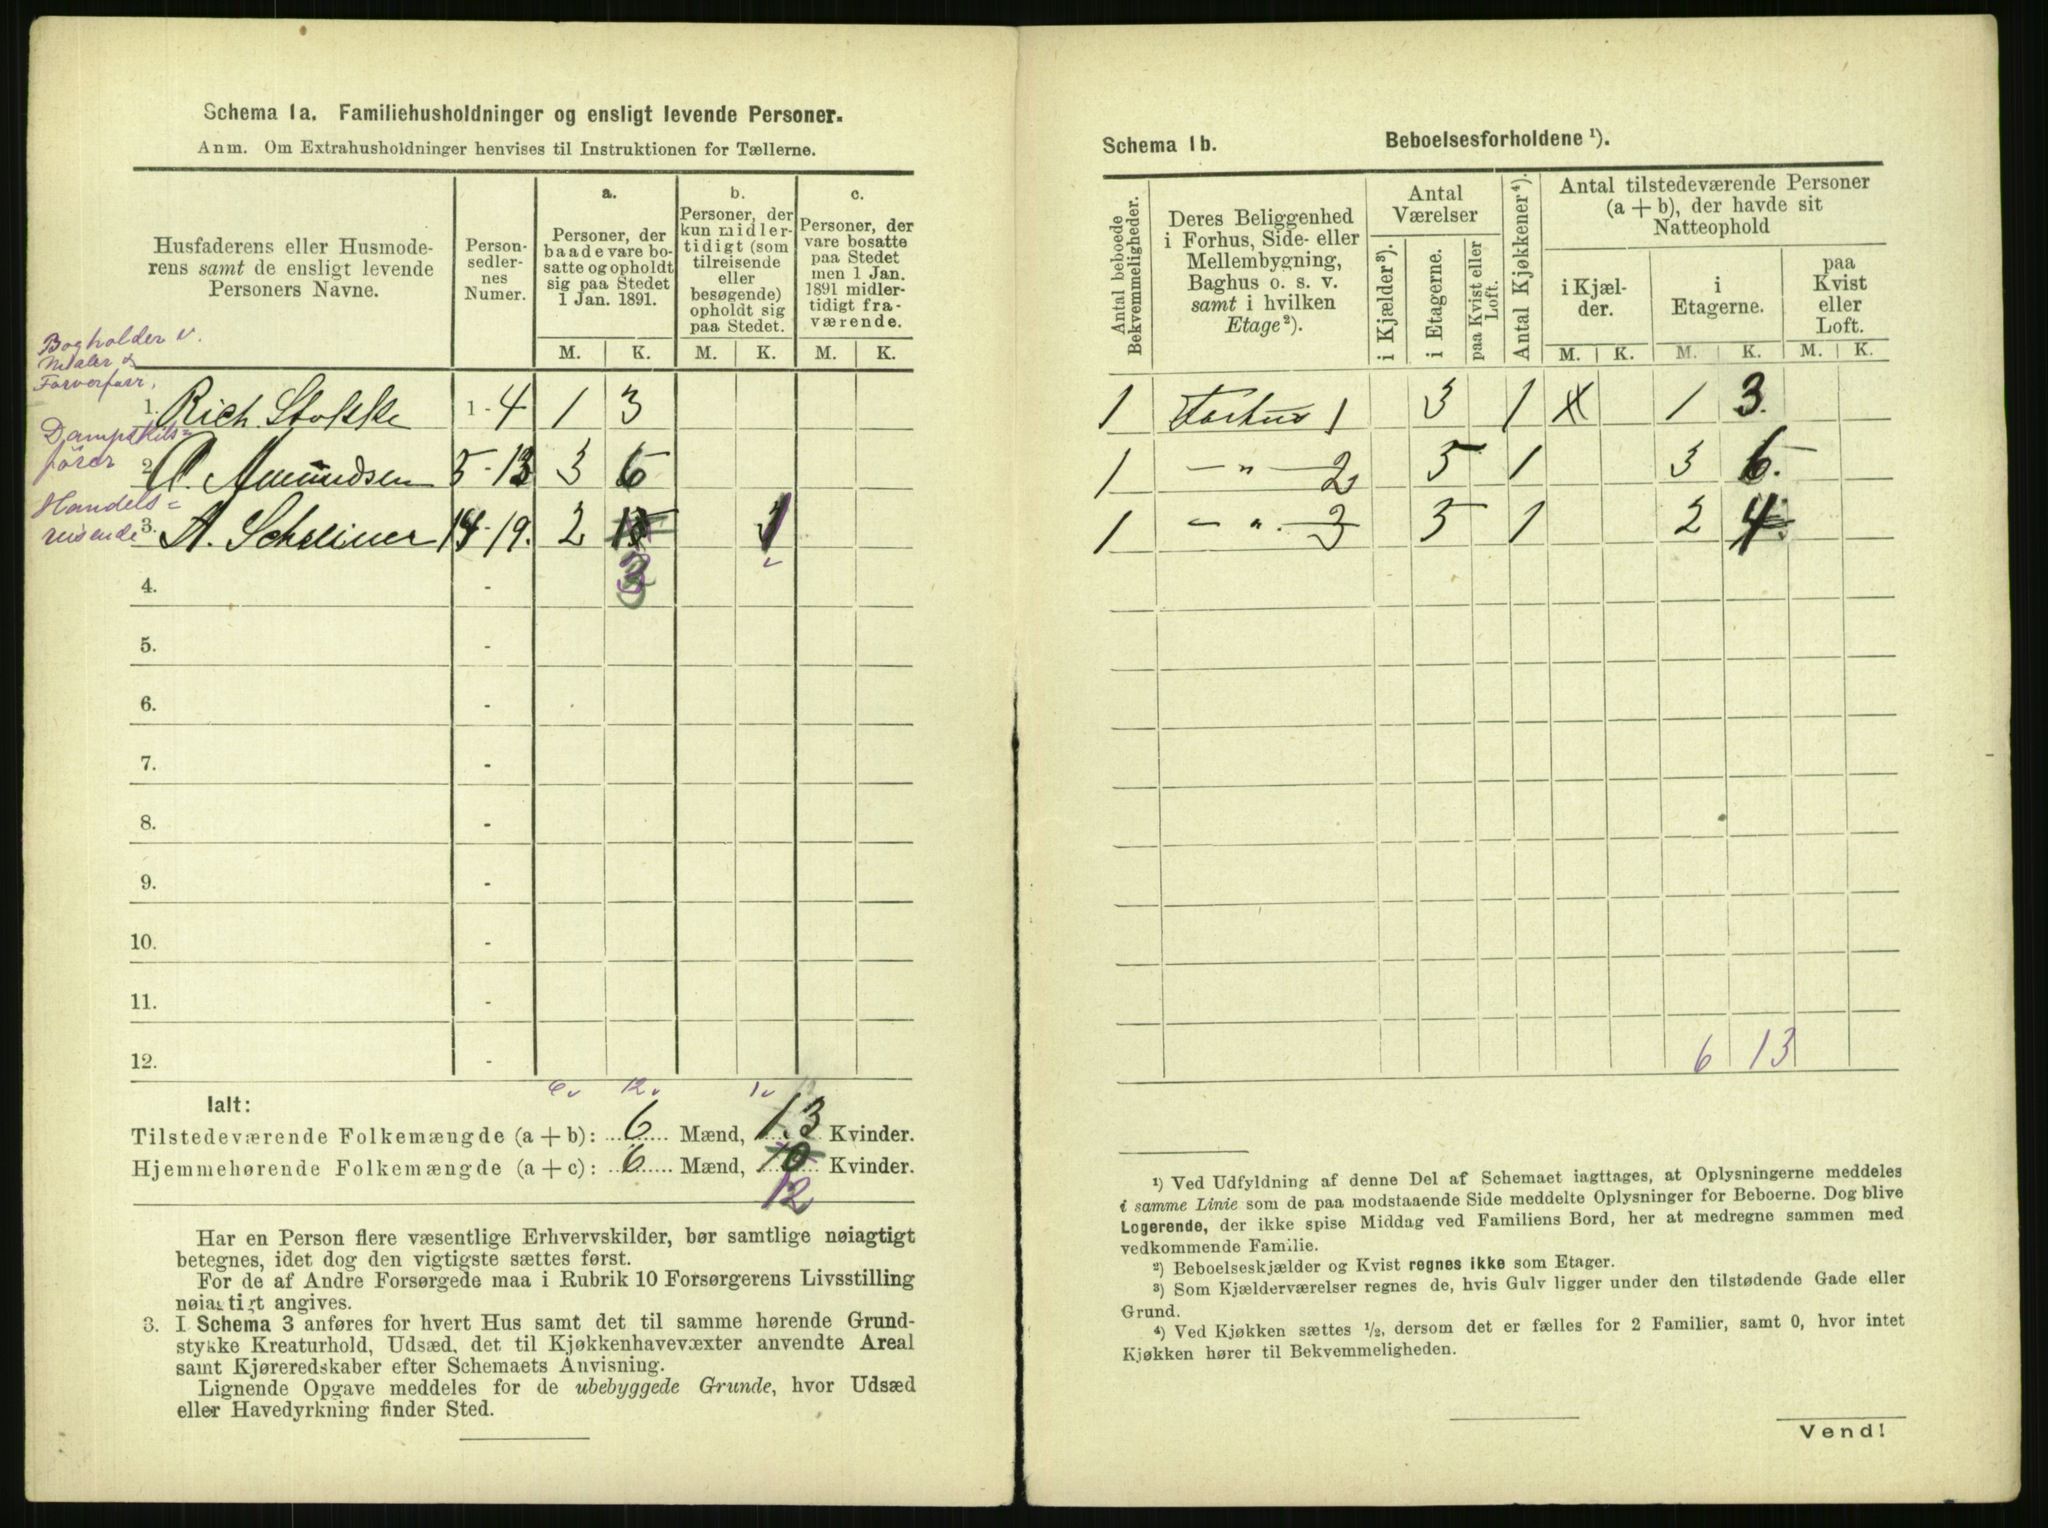 Schema 1a. Familiehusholdninger og ensligt levende Personer.
Anm. Om Extrahusholdninger henvises til Instruktionen for Tællerne.
Husfaderens eller Husmode-
rens samt de ensligt levende
Personers Navne.
Person-
sedler-
nes
Numer.
a.
Personer, der
baade vare bo-
satte og opholdt
sig paa Stedet
1 Jan. 1891.
b.
Personer, der
kun midler-
tidigt (som
tilreisende
eller
besøgende)
opholdt sig
paa Stedet.
c.
Personer, der
vare bosatte
paa Stedet
men 1 Jan.
1891 midler-
tidigt fra-
værende.
M. K. M. K. M. K.
Bogholder v.
Maler &
Farveforr,
1. Rich. Stokke 1 - 4 1 3
Dampskibs=
fører
2. Amundsen 5 - 13 3 6
Handels=
reisende
3. A. Schreiner 14 - 19. 2 1
3
4. -
5. -
6. -
7. -
8. -
9. -
10. -
11. -
12. -
6v 12v 1v
Ialt:
Tilstedeværende Folkemængde (a + b): 6 Mænd, 13 Kvinder.
Hjemmehørende Folkemængde (a + c): 6 Mænd, 10 Kvinder.
12
Har en Person flere væsentlige Erhvervskilder, bør samtlige nøiagtigt
betegnes, idet dog den vigtigste sættes først.
For de af Andre Forsørgede maa i Rubrik 10 Forsørgerens Livsstilling
nøiagtigt angives.
3. I Schema 3 anføres for hvert Hus samt det til samme hørende Grund-
stykke Kreaturhold, Udsæd, det til Kjøkkenhavevæxter anvendte Areal
samt Kjøreredskaber efter Schemaets Anvisning.
Lignende Opgave meddeles for de ubebyggede Grunde, hvor Udsæd
eller Havedyrkning finder Sted.
Schema 1b. Beboelsesforholdene ¹).
Antal beboede
Bekvemmeligheder.
Deres Beliggenhed
i Forhus, Side- eller
Mellembygning,
Baghus o. s. v.
samt i hvilken
Etage²).
Antal
Værelser
i Kjælder³).
i Etagerne.
paa Kvist eller
Loft.
Antal Kjøkkener⁴).
Antal tilstedeværende Personer
(a + b), der havde sit
Natteophold
i Kjæl-
der.
i
Etagerne.
paa
Kvist
eller
Loft.
M. K. M. K. M. K.
1 Forhus 1 3 1 X 1 3.
1 — „ — 2 5 1 3 6.
1 — „ — 3 5 1 2 4.
6 13
¹) Ved Udfyldning af denne Del af Schemaet iagttages, at Oplysningerne meddeles
i samme Linie som de paa modstaaende Side meddelte Oplysninger for Beboerne. Dog blive
Logerende, der ikke spise Middag ved Familiens Bord, her at medregne sammen med
vedkommende Familie.
²) Beboelseskjælder og Kvist regnes ikke som Etager.
³) Som Kjælderværelser regnes de, hvis Gulv ligger under den tilstødende Gade eller
Grund.
⁴) Ved Kjøkken sættes ½, dersom det er fælles for 2 Familier, samt 0, hvor intet
Kjøkken hører til Bekvemmeligheden.
Vend!